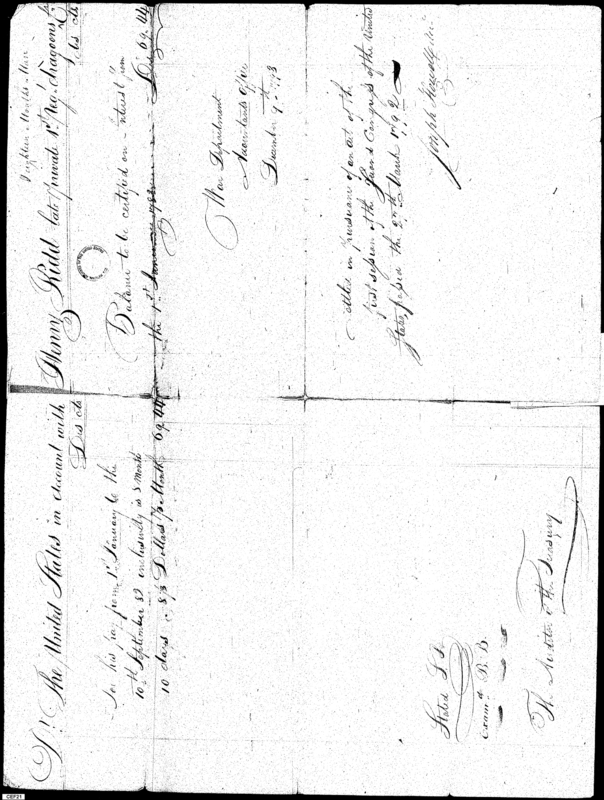 Dr. The United States in account with Henry Kidd late private 1st Reg. dragoons Cr
Dls cts
Dls cts
For his pay from 1st January to the
10th September 82 inclusively is 8 Months
10 days @ 8 1/3 Dollars p Month 69.44
Balance to be certified on interest from
the 1st January 1783 Dls 69.44
War Department
Accountants office
December 7th 1793
Stated
Exam'd B. B.
The Auditor of the Treasury
settled in pursuance of an act of the
first session of the second Congress of the United
States, passed the 27th March 1792
Joseph Howell
CEF21